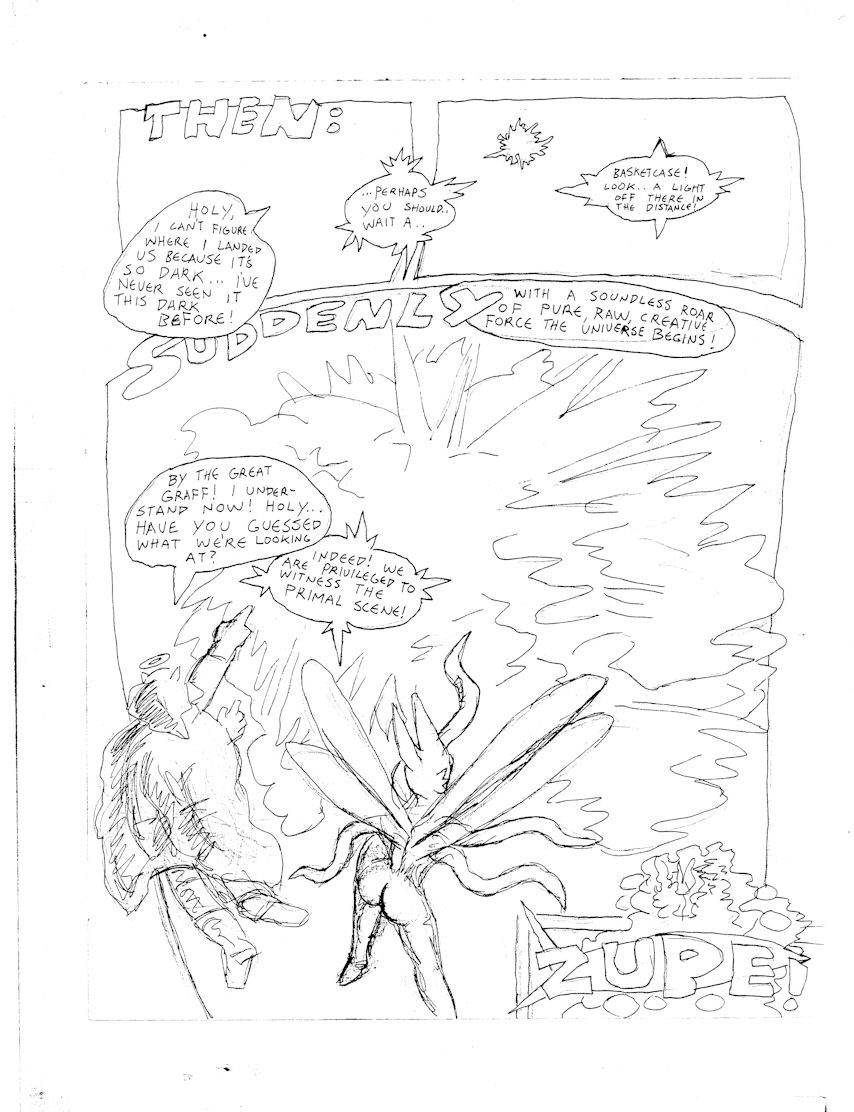 THEN:
HOLY,
I CAN'T FIGURE
WHERE I LANDED
US BECAUSE IT'S
SO DARK... I'VE
NEVER SEEN IT
THIS DARK
BEFORE!
...PERHAPS
YOU SHOULD..
WAIT A..
BASKETCASE!
LOOK.. A LIGHT
OFF THERE IN
THE DISTANCE!
SUDDENLY
WITH A SOUNDLESS ROAR
OF PURE, RAW, CREATIVE
FORCE THE UNIVERSE BEGINS!
BY THE GREAT
GRAFF! I UNDER-
STAND NOW! HOLY...
HAVE YOU GUESSED
WHAT WE'RE LOOKING
AT?
INDEED! WE
ARE PRIVILEGED TO
WITNESS THE
PRIMAL SCENE!
ZUPE!